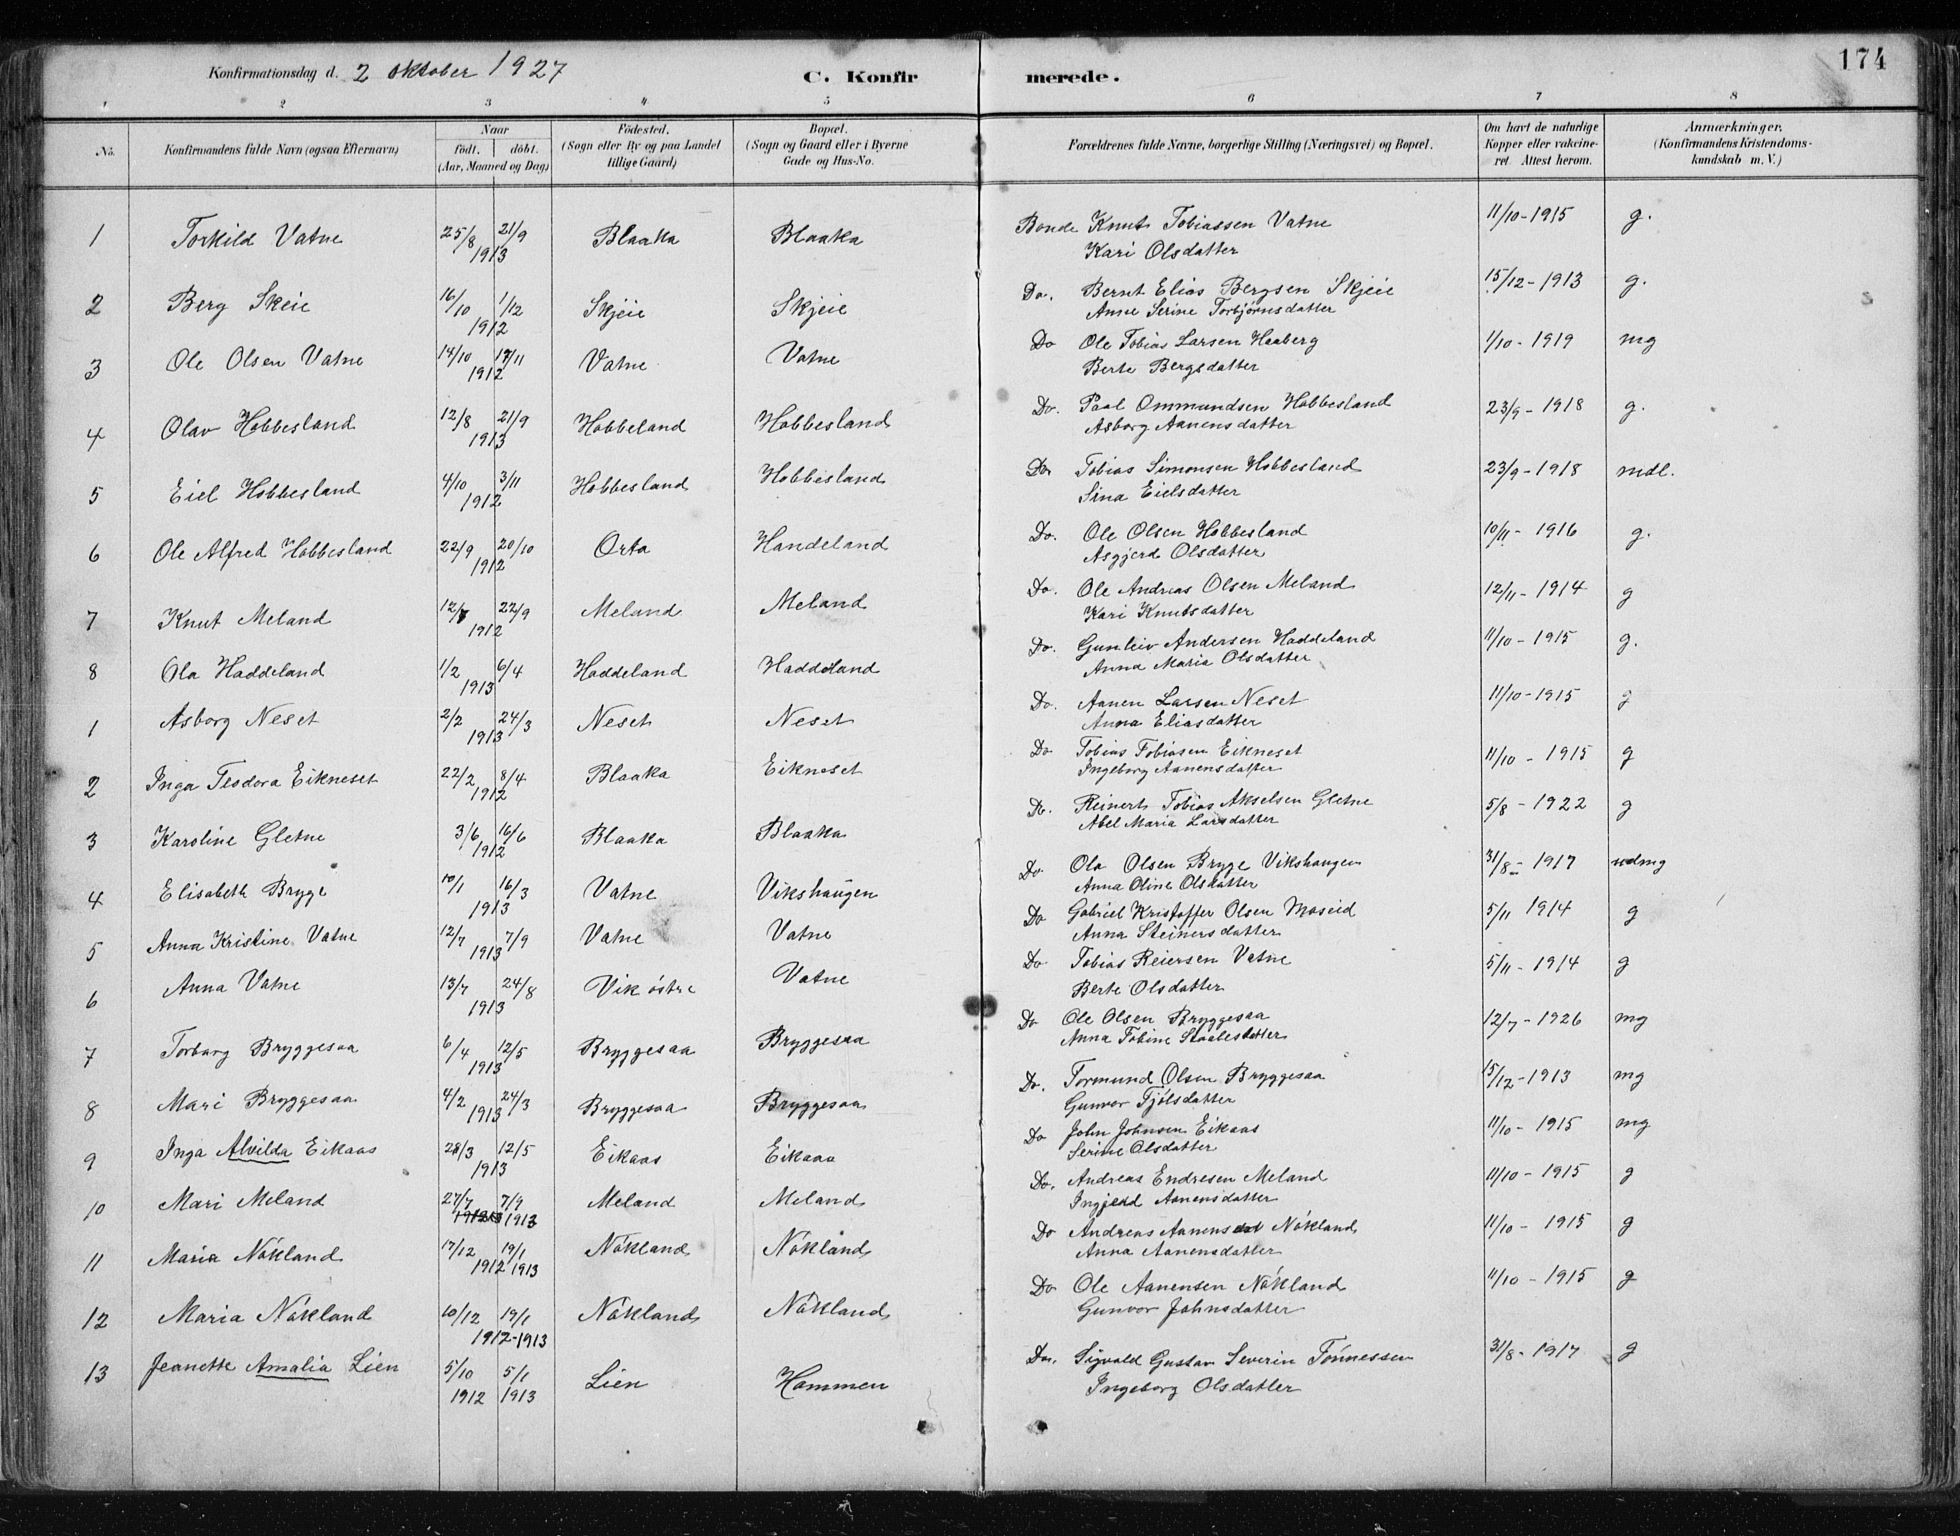 174
Konfirmationsdag d. 2 oktober 1927 C. Konfirmerede.
1 2 3 4 5 6 7 8
No. Konfirmandens fulde Navn (ogsaa Efternavn) Naar födt. döbt. (Aar, Maaned og Dag) Födested. (Sogn eller By og paa Landet tillige Gaard) Bopæl. (Sogn og Gaard eller i Byerne Gade og Hus-No. Forældrenes fulde Navne, borgerlige Stilling (Næringsvei) og Bopæl. Om havt de naturlige Kopper eller vaccineret. Attest herom. Anmærkninger. (Konfirmandens Kristendomskundskab m. V.)
1 Torkild Vatne 25/8 21/9 1913 Blaaka Blaaka Bonde Knut Tobiassen Vatne 11/10-1915 g.
Kari Olsdatter
2 Berg Skeie 16/10 1/12 1912 Skjeie Skjeie Do. Bernt Elias Bergsen Skjeie 15/12-1913 g.
Anne Serine Torbjørnsdatter
3 Ole Olsen Vatne 14/10 17/11 1912 Vatne Vatne Do Ole Tobias Larsen Haaberg 1/10-1919 mg
Berte Bergsdatter
4 Olav Hobbesland 12/8 21/9 1913 Hobbeland Hobbesland Do. Paal Ommundsen Hobbesland 23/9-1918 g.
Asborg Aanensdatter
5 Eiel Hobbesland 4/10 3/11 1912 Hobbesland Hobbesland Do Tobias Simonsen Hobbesland 23/9-1918 mdl.
Sina Eielsdatter
6 Ole Alfred Hobbesland 22/9 20/10 1912 Orta Handeland Do. Ole Olsen Hobbesland 10/11-1916 g.
Asgjerd Olsdatter
7 Knut Meland 22/9 1912 Meland Meland Do. Ole Andreas Olsen Meland 12/11-1914 g
Kari Knutsdatter
8 Ola Haddeland 1/2 6/4 1913 Haddeland Haddeland Do. Gunleiv Andersen Haddeland 11/10-1915 g.
Anna Maria Olsdatter
1 Asborg Neset 2/2 24/3 1913 Neset Neset Do. Aanen Larsen Neset 11/10-1915 g
Anna Eliasdatter
2 Inga Teodora Eikneset 22/2 8/4 1912 Blaaka Eikneset Do Tobias Tobiasen Eikneset 11/10-1915 g
Ingeborg Aanensdatter
3 Karoline Gletne 3/6 16/6 1912 Blaaka Blaaka Do. Reinert Tobias Akselsen Gletne 5/8-1922 g
Abel Maria Larsdatter
4 Elisabeth Brygge 10/1 16/3 1913 Vatne Vikshaugen Do Ola Olsen Brygge Vikshaugen 31/8-1917 udmg
Anna Oline Olsdatter
5 Anna Kristine Vatne 12/7 7/9 1913 Vatne Vatne Do Gabriel Kristoffer Olsen Moseid 5/11 1914 g
Anna Steinersdatter
6 Anna Vatne 13/7 24/8 1913 Vik østre Vatne Do Tobias Reiersen Vatne 5/11-1914 g
Berte Olsdatter
7 Torborg Bryggesaa 6/4 12/5 1913 Bryggesaa Bryggesaa Do Ole Olsen Bryggesaa 12/7-1926 mg
Anna Tobine Staalesdatter
8 Mari Bryggesaa 4/2 24/3 1913 Bryggesaa Bryggesaa Do. Tormund Olsen Bryggesaa 15/12-1913 mg
Gunvor Tjølsdatter
9 Inga Alvilda Eikaas 28/3 12/5 1913 Eikaas Eikaas Do John Johnsen Eikaas 11/10-1915 mg
Serine Olsdatter
10 Mari Meland 27/7 7/9 1913 Meland Meland Do. Andreas Endresen Meland 11/10-1915 g
Ingjerd Aanensdatter
11 Maria Nökland 17/12 19/1 1912 1913 Nökland Nökland Do Andreas Aanens Nökland 11/10-1915 g
Anna Aanensdatter
12 Maria Nökland 10/12 19/1 1912-1913 Nökland Nökland Do Ole Aanensen Nökland 11/10-1915 g
Gunvor Johnsdatter
13 Jeanette Amalia Lien 5/10 5/1 1912 1913 Lien Hommen Do. Sigvald Gustav Severin Tönnessen 31/8-1917 g
Ingeborg Olsdatter